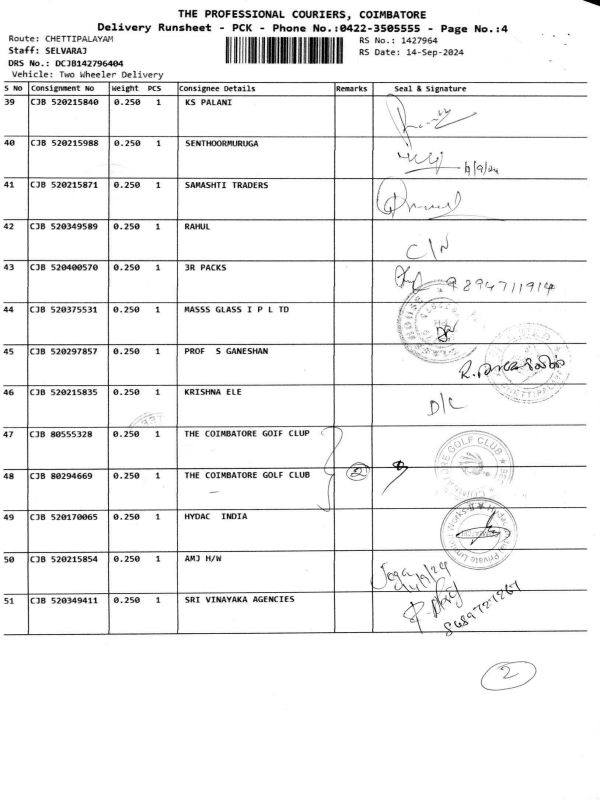 THE PROFESSIONAL COURIERS, COIMBATORE
Delivery Runsheet - PCK - Phone No.:0422-3505555 - Page No.:4
Route: CHETTIPALAYAM RS No.: 1427964
Staff: SELVARAJ RS Date: 14-Sep-2024
DRS No.: DCJB142796404
Vehicle: Two Wheeler Delivery
S No Consignment No Weight PCS Consignee Details Remarks Seal & Signature
39 CJB 520215840 0.250 1 KS PALANI
40 CJB 520215988 0.250 1 SENTHOORMURUGA
41 CJB 520215871 0.250 1 SAMASHTI TRADERS
42 CJB 520349589 0.250 1 RAHUL C/N
43 CJB 520400570 0.250 1 3R PACKS 9894711914
44 CJB 520375531 0.250 1 MASSS GLASS I P L TD
45 CJB 520297857 0.250 1 PROF S GANESHAN
46 CJB 520215835 0.250 1 KRISHNA ELE D/C
47 CJB 80555328 0.250 1 THE COIMBATORE GOIF CLUP
48 CJB 80294669 0.250 1 THE COIMBATORE GOLF CLUB 2
GOLF CLUB
49 CJB 520170065 0.250 1 HYDAC INDIA
50 CJB 520215854 0.250 1 AMJ H/W
51 CJB 520349411 0.250 1 SRI VINAYAKA AGENCIES
2